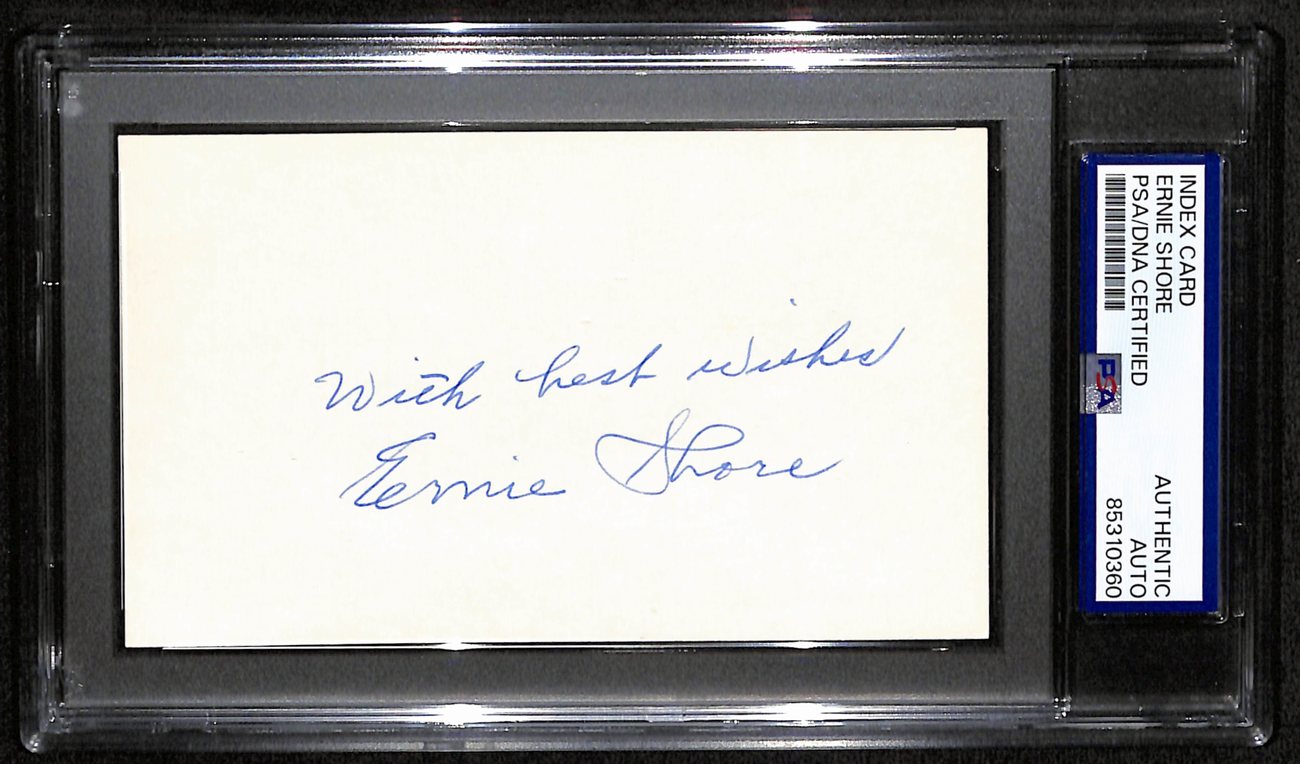 With best wishes
Ernie Shore
INDEX CARD
ERNIE SHORE
PSA/DNA CERTIFIED
AUTHENTIC
AUTO
85310360
PSA